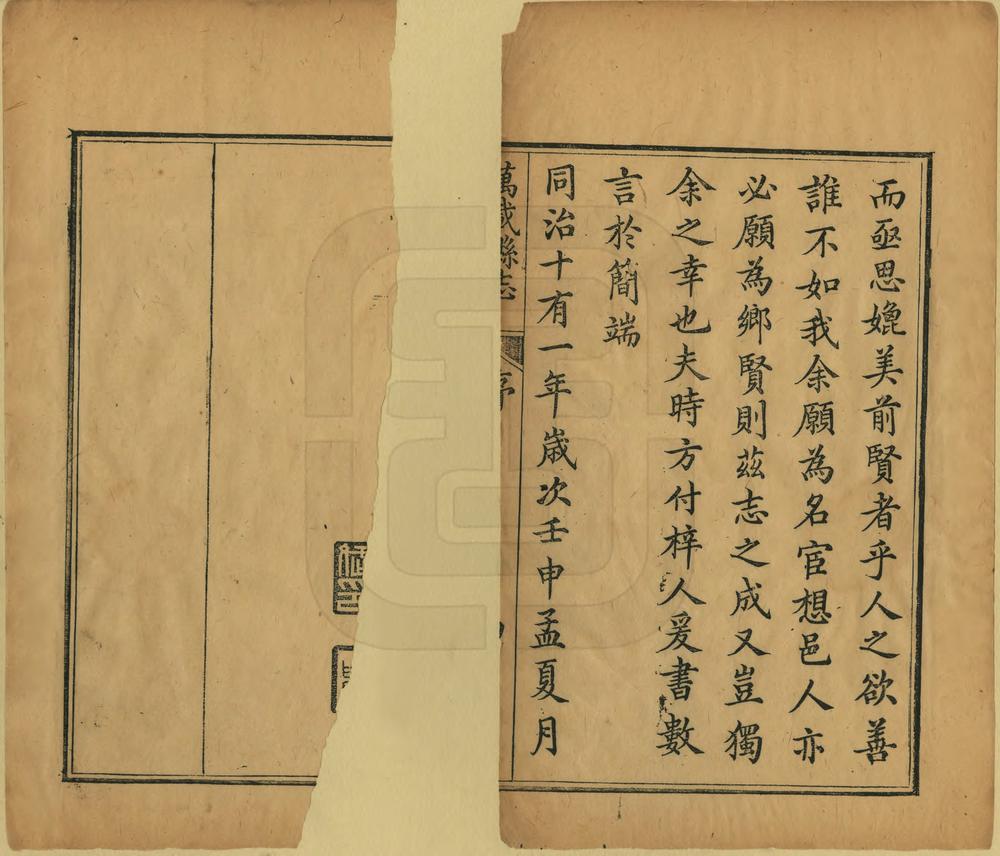 而亟思媲美前賢者乎人之欲善
誰不如我余願為名宦想邑人亦
必願為鄉賢則茲志之成又豈獨
余之幸也夫時方付梓人爰書數
言於簡端
同治十有一年歲次壬申孟夏月
萬載縣志
序